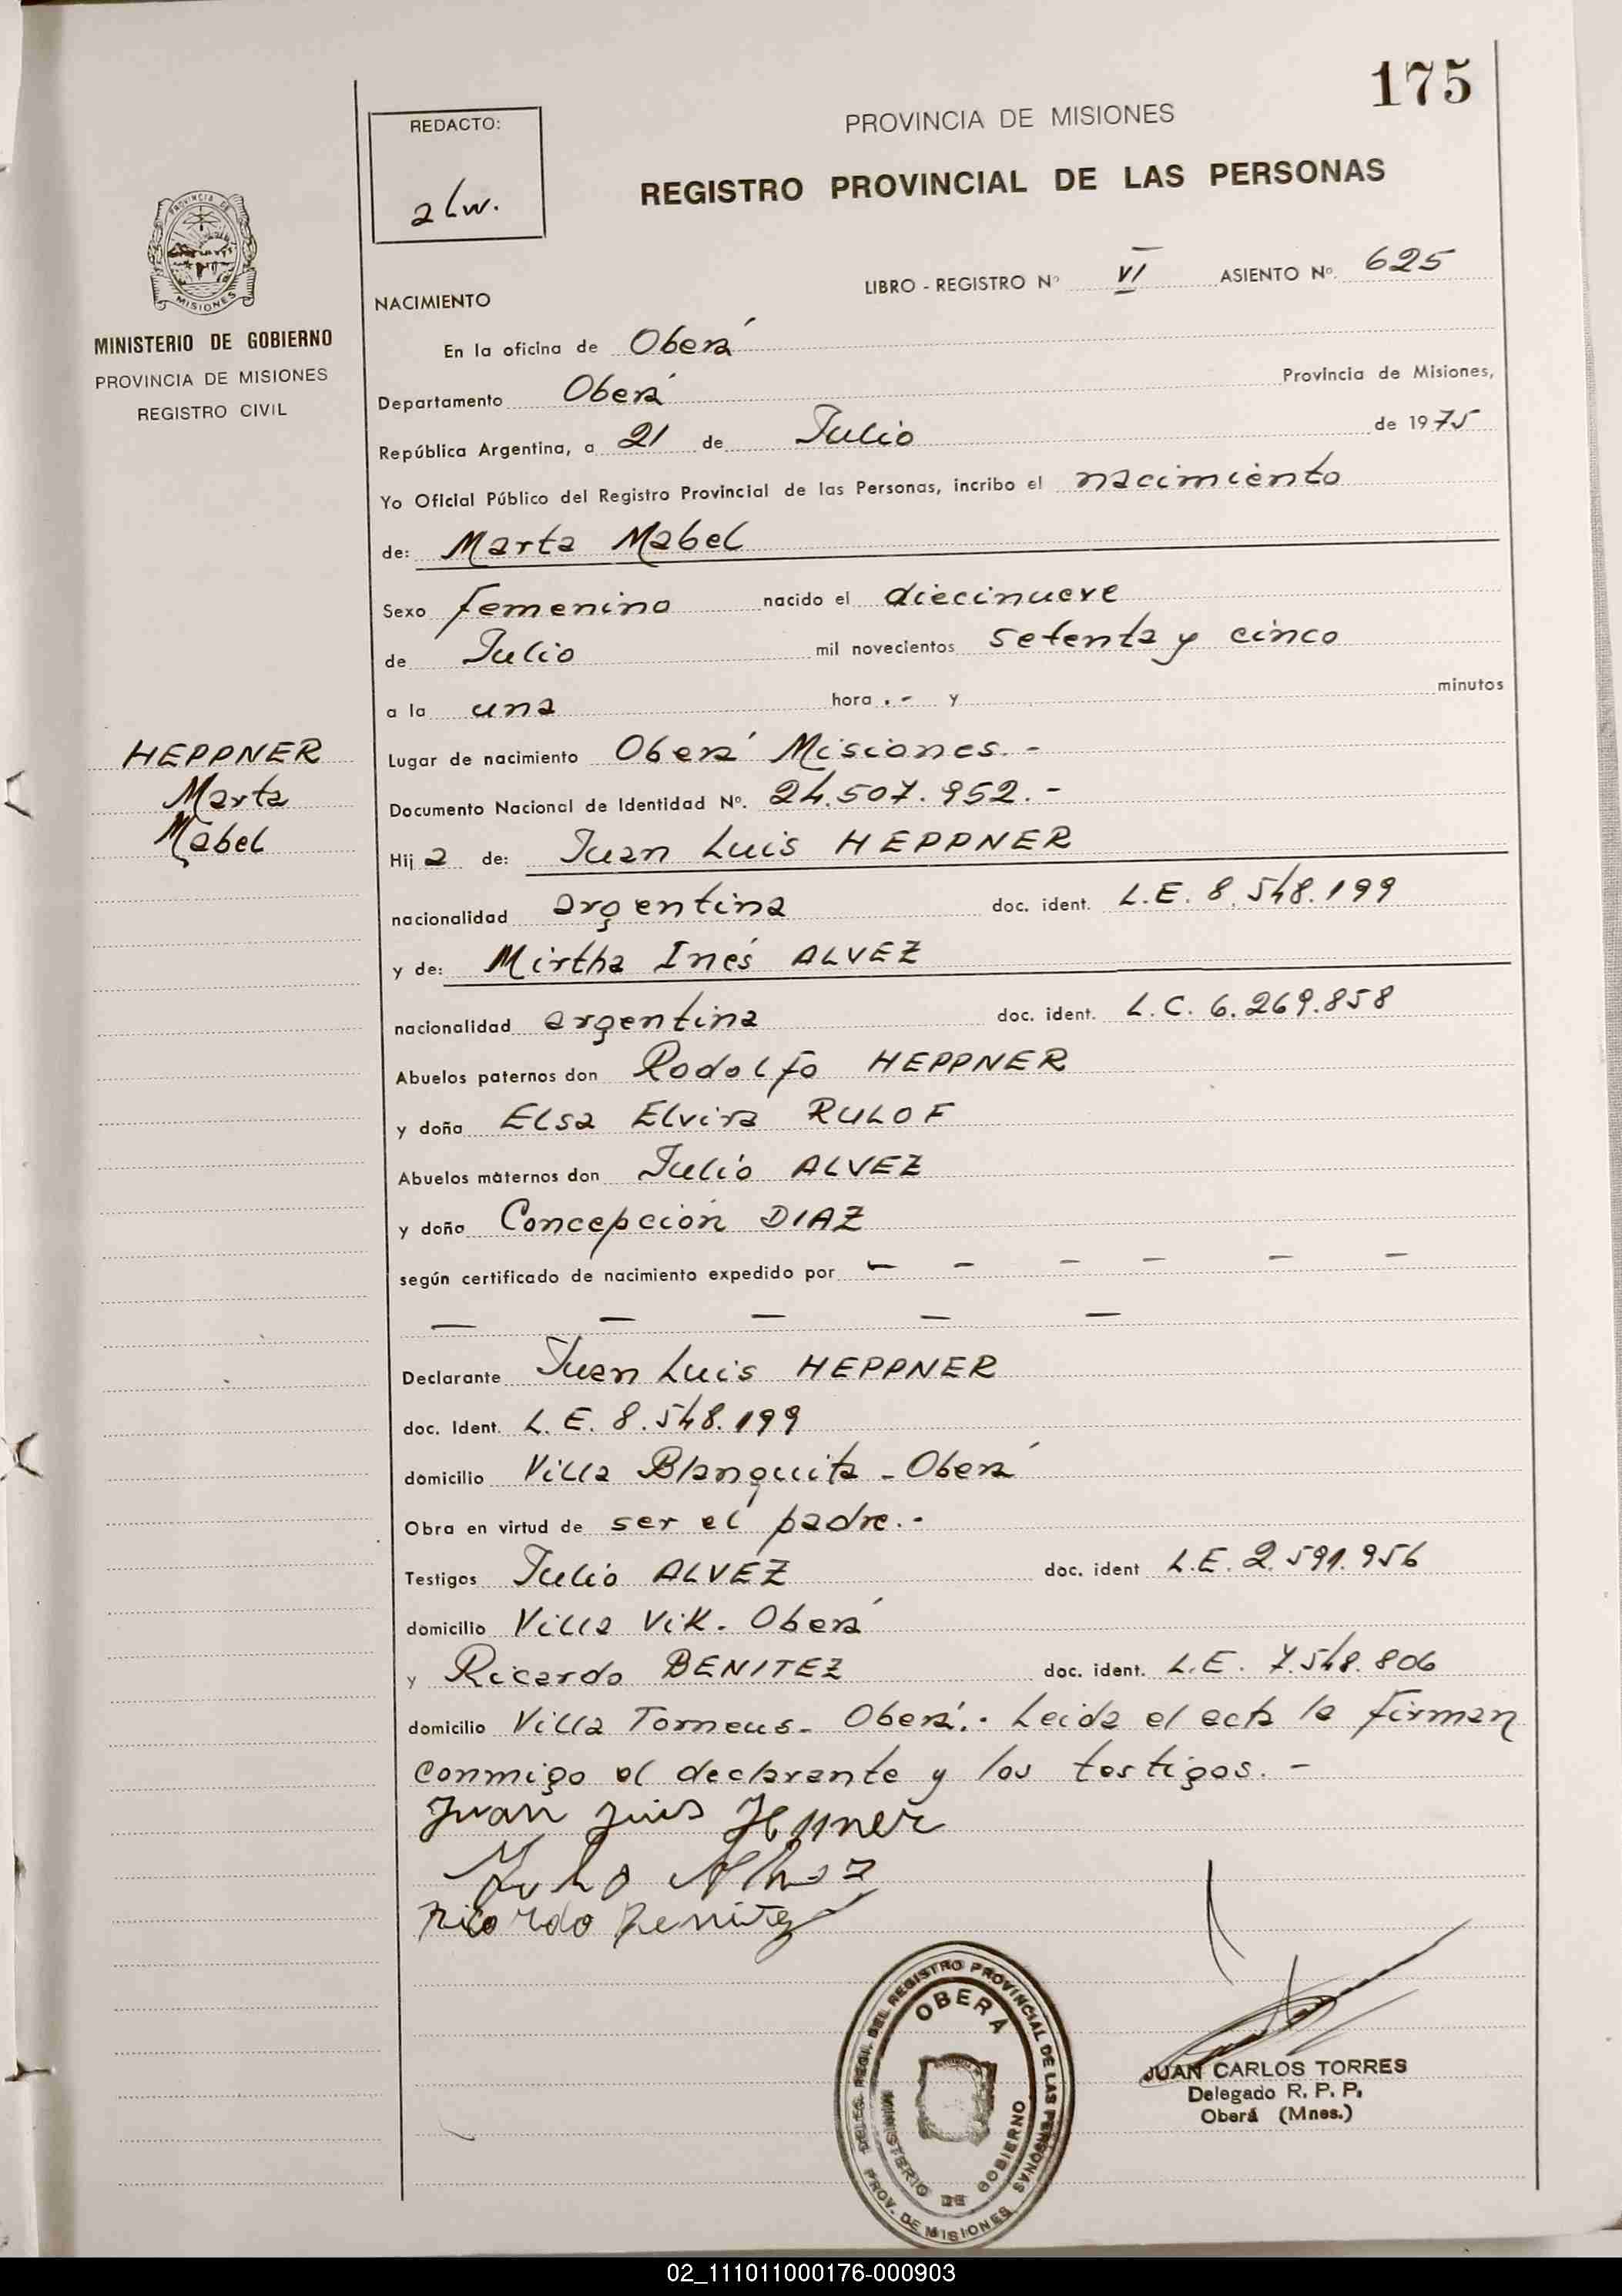 175
PROVINCIA DE MISIONES
REGISTRO PROVINCIAL DE LAS PERSONAS
REDACTO:
alw.
PROVINCIA DE
MISIONES
MINISTERIO DE GOBIERNO
PROVINCIA DE MISIONES
REGISTRO CIVIL
LIBRO - REGISTRO Nº VI ASIENTO Nº 625
NACIMIENTO
En la oficina de Oberá
Departamento Oberá Provincia de Misiones,
República Argentina, a 21 de Julio de 1975
Yo Oficial Público del Registro Provincial de las Personas, incribo el nacimiento
de: Marta Mabel
Sexo femenino nacido el diecinueve
de Julio mil novecientos setenta y cinco
a la una hora .- y minutos
HEPPNER
Marta
Mabel
Lugar de nacimiento Oberá Misiones.-
Documento Nacional de Identidad Nº. 24.507.952.-
Hij a de: Juan Luis HEPPNER
nacionalidad argentina doc. ident. L.E. 8.548.199
y de: Mirtha Inés ALVEZ
nacionalidad argentina doc. ident. L.C. 6.269.858
Abuelos paternos don Rodolfo HEPPNER
y doña Elsa Elvira RULOF
Abuelos maternos don Julio ALVEZ
y doña Concepción DIAZ
según certificado de nacimiento expedido por - - - - - -
- - - - -
Declarante Juan Luis HEPPNER
doc. Ident. L.E. 8.548.199
domicilio Villa Blanquita - Oberá
Obra en virtud de ser el padre.-
Testigos Julio ALVEZ doc. ident L.E. 2.591.956
domicilio Villa Vik. Oberá
y Ricardo BENITEZ doc. ident. L.E. 7.548.806
domicilio Villa Torneus - Oberá.- Leida el acta la firman
conmigo el declarante y los testigos.-
Juan Luis Heppner
Julio Alvez
Ricardo Benitez
DELEG. REGI. DEL REGISTRO PROVINCIAL DE LAS PERSONAS
OBERA
MINISTERIO DE GOBIERNO
PROV. DE MISIONES
JUAN CARLOS TORRES
Delegado R. P. P.
Oberá (Mnes.)
02_111011000176-000903